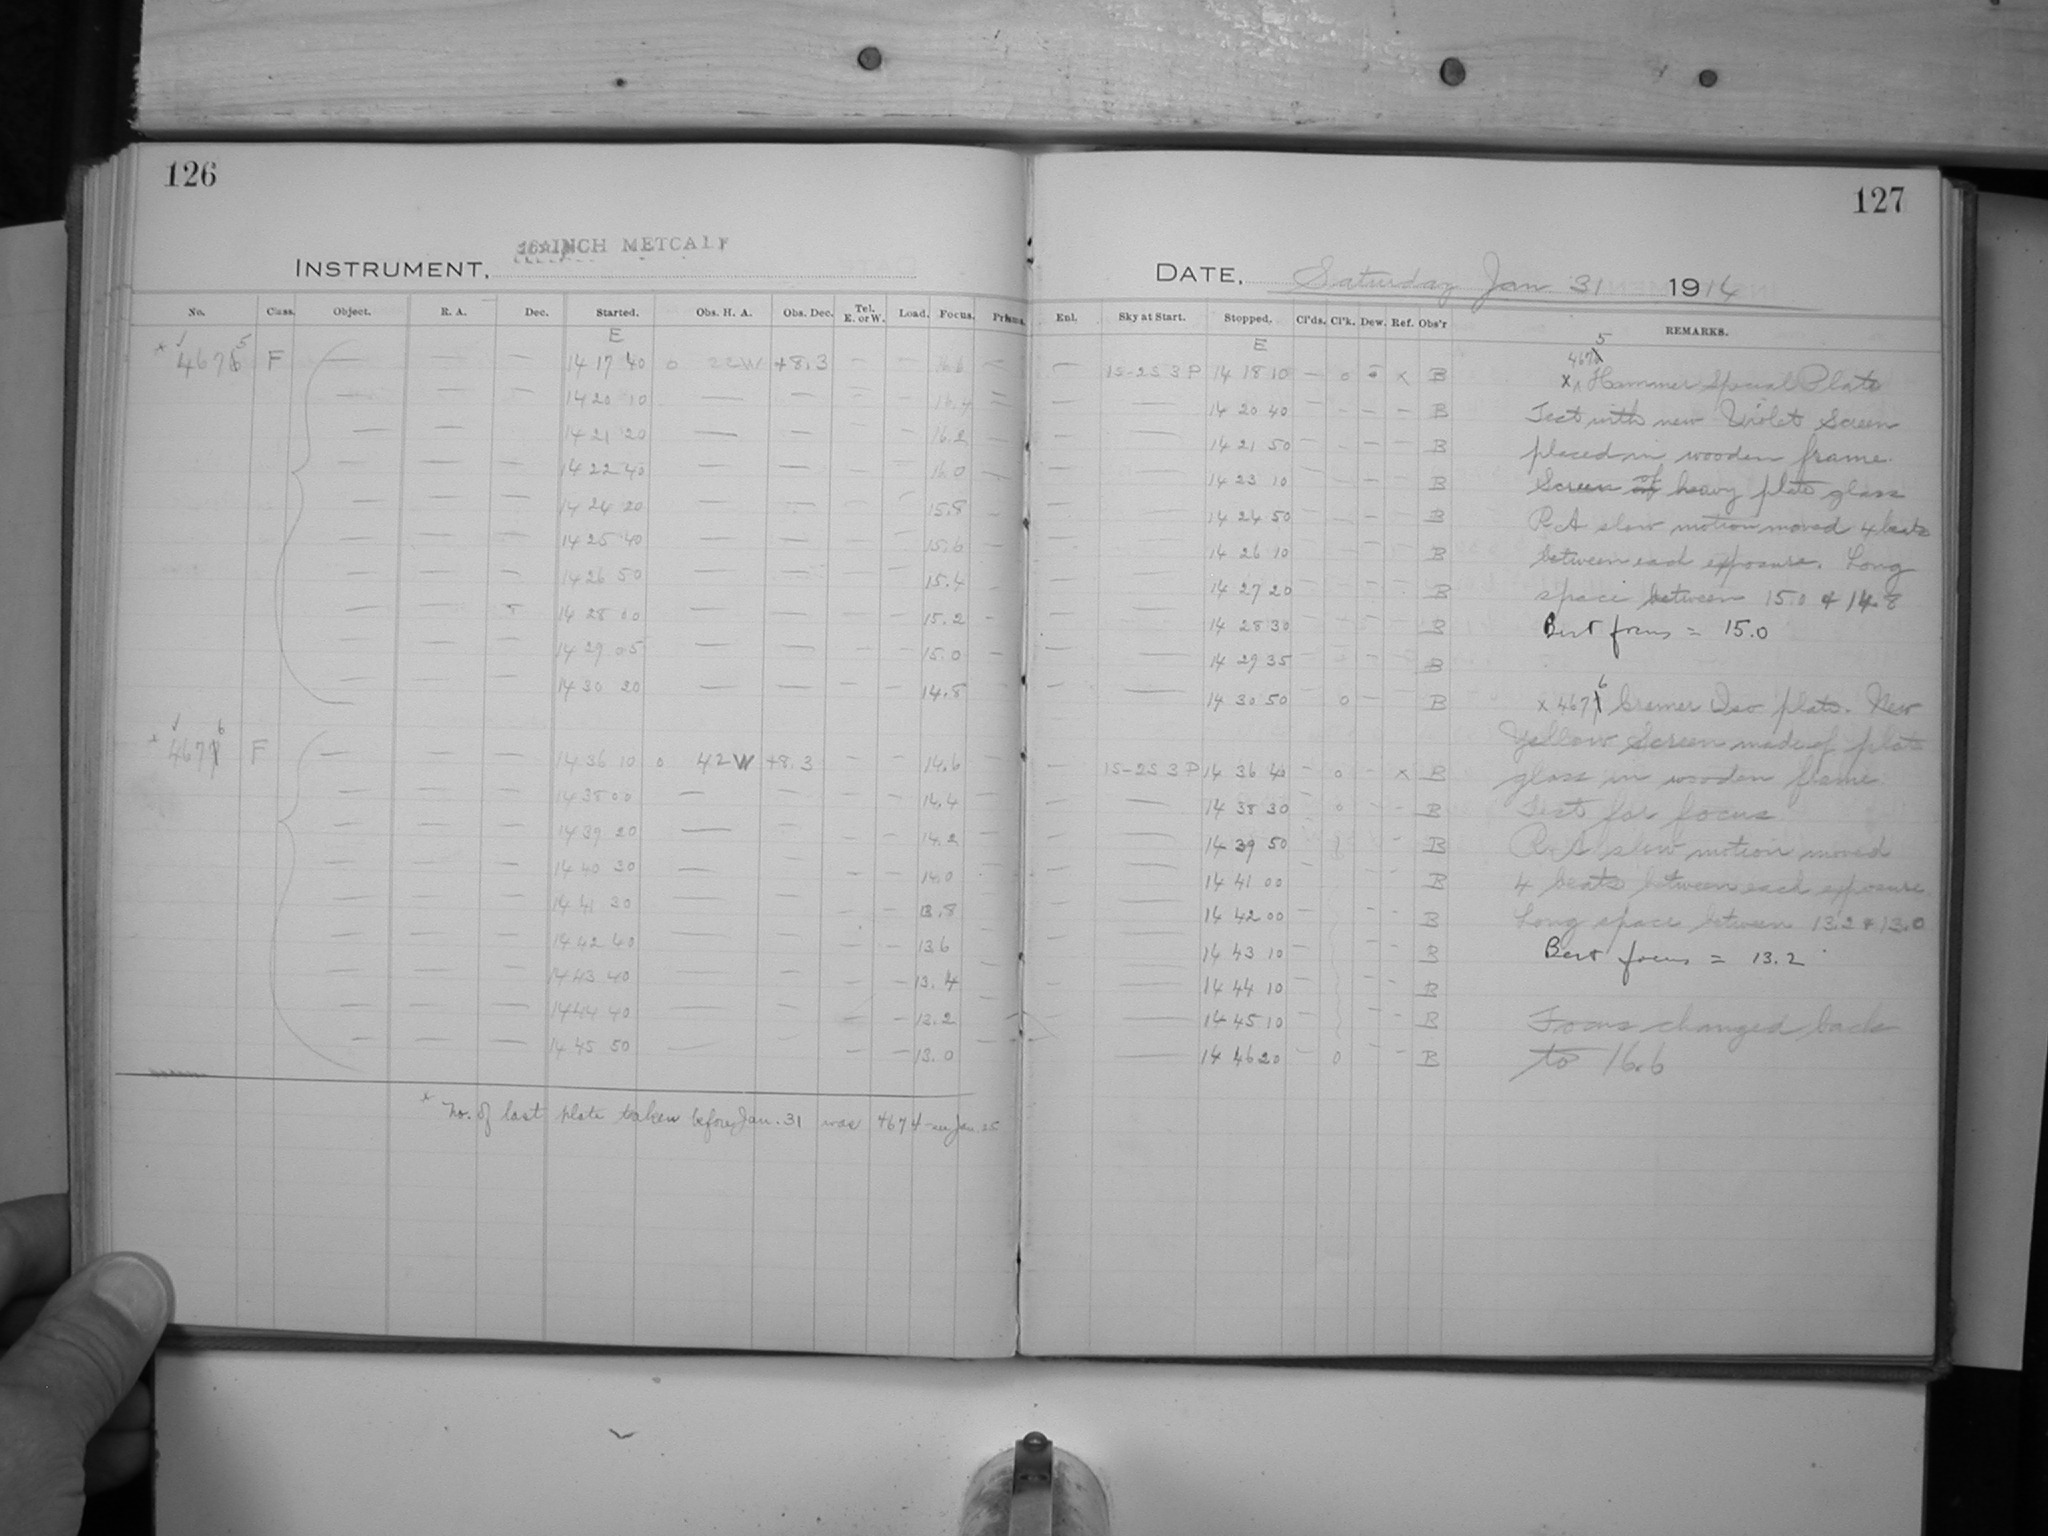 126
127
INSTRUMENT, 16-INCH METCALF
DATE, Saturday Jan 31 1914
No. Class. Object. R. A. Dec. Started. Obs. H. A. Obs. Dec. Tel. E. or W. Load. Focus. Prisms. Enl. Sky at Start. Stopped. Cl'ds. Cl'k. Dew. Ref. Obs'r REMARKS.
E E
4675 F — — 14 17 40 0 22W +8.3 — — 16.6 — — 1S-2S 3P 14 18 10 — 0 — x B
— — — 14 20 10 — — 16.4 — — 14 20 40 — — — — B
— — — 14 21 20 — — 16.2 — — 14 21 50 B
— — — 14 22 40 — — 16.0 — — 14 23 10 B
— — — 14 24 20 — — 15.8 — — 14 24 50 B
— — — 14 25 40 — — 15.6 — — 14 26 10 B
— — — 14 26 50 — — 15.4 — — 14 27 20 B
— — — 14 28 00 — — 15.2 — — 14 28 30 B
— — — 14 29 05 — — 15.0 — — 14 29 35 B
— — — 14 30 20 — — 14.8 — — 14 30 50 0 — B
4676 F — — — 14 36 10 0 42W +8.3 — — 14.6 — 1S-2S 3P 14 36 40 — 0 — x B
— — — 14 38 00 — — 14.4 — — 14 38 30 0 — — B
— — — 14 39 20 — — 14.2 — — 14 39 50 B
— — — 14 40 30 — — 14.0 — — 14 41 00 B
— — — 14 41 30 — — 13.8 — — 14 42 00 B
— — — 14 42 40 — — 13.6 — — 14 43 10 B
— — — 14 43 40 — — 13.4 — — 14 44 10 B
— — — 14 44 40 — — 13.2 — — 14 45 10 B
— — — 14 45 50 — — 13.0 — — 14 46 20 — 0 — — B
x No. of last plate taken before Jan. 31 was 4674 - see Jan. 25
4675
x Hammer Special Plate
Test with new Violet Screen
placed in wooden frame.
Screen of heavy plate glass
R.A slow motion moved 4 beats
between each exposure. Long
space between 15.0 & 14.8
Best focus = 15.0
x 4676 Cramer Iso plate. New
Yellow Screen made of plate
glass in wooden frame.
Test for focus
R.A slow motion moved
4 beats between each exposure
Long space between 13.2 & 13.0
Best focus = 13.2
Focus changed back
to 16.6